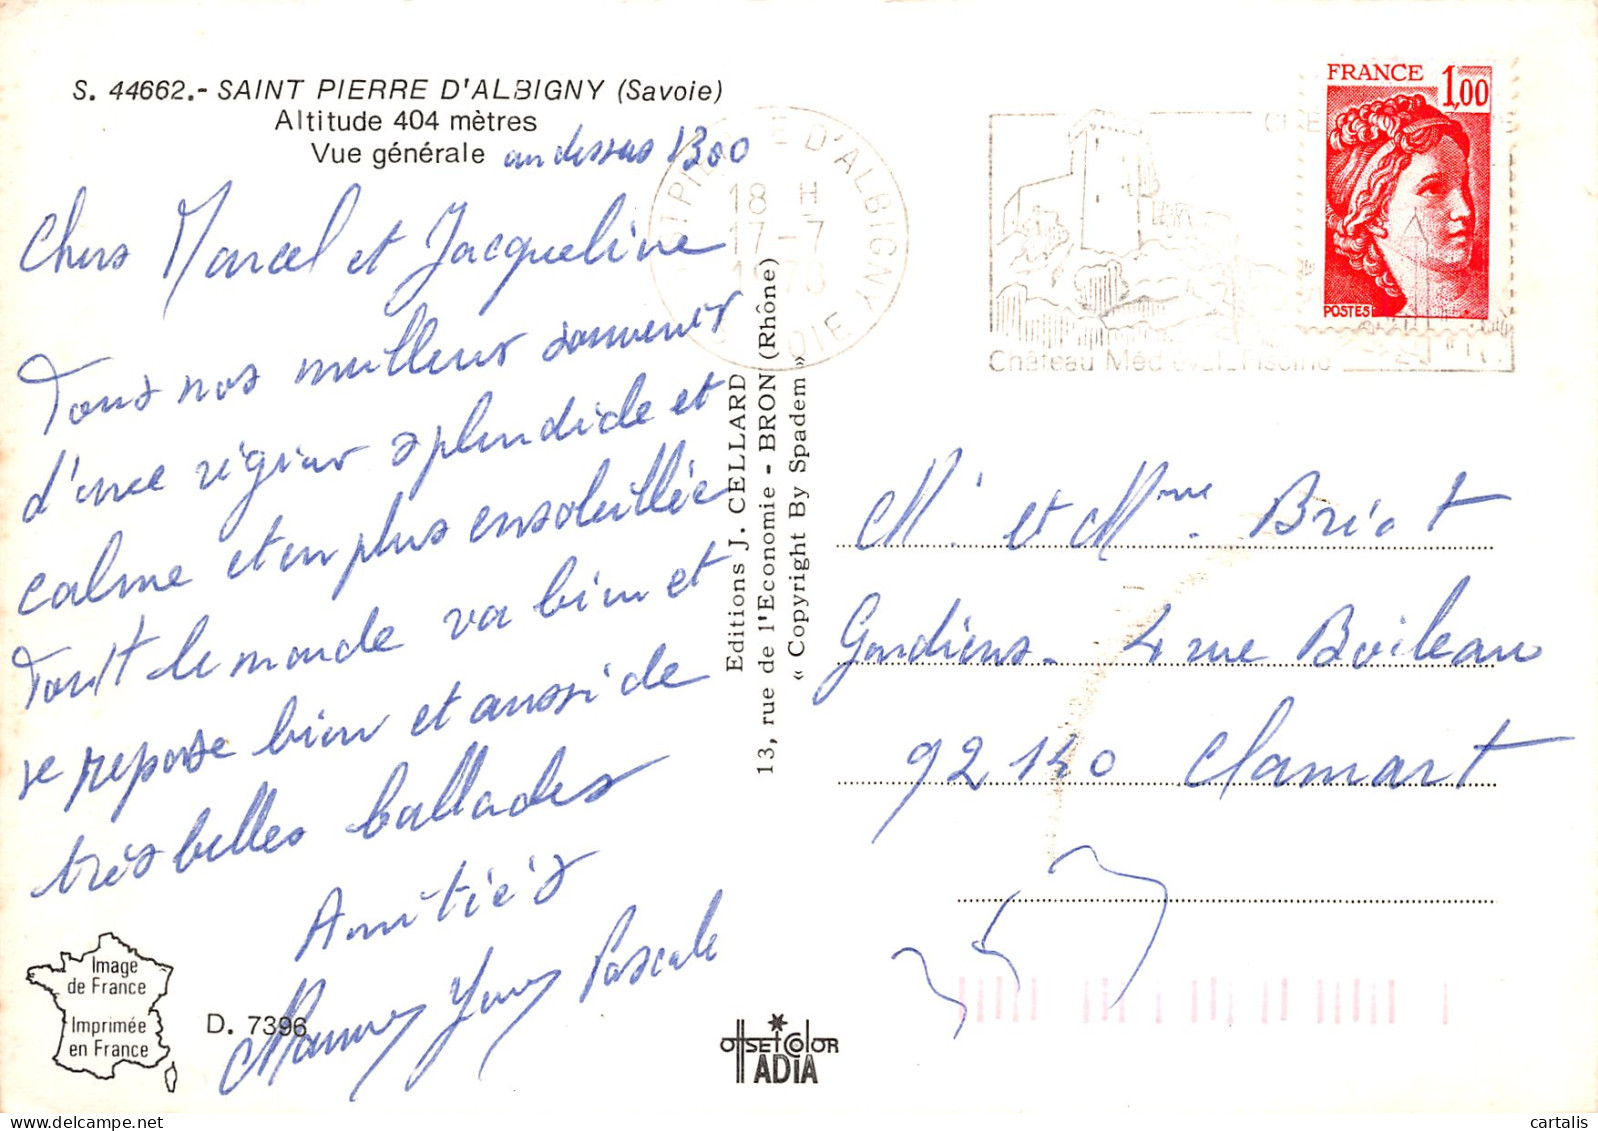 S. 44662.- SAINT PIERRE D'ALBIGNY (Savoie)
Altitude 404 mètres
Vue générale au dessus 1300
Chers Marcel et Jacqueline
Tous nos meilleurs souvenirs
d'une région splendide et
calme et en plus ensoleillée
Tout le monde va bien et
se repose bien et aussi de
très belles ballades
Amitiés
Yves Pascale
Image
de France
Imprimée
en France
D. 7396
Editions J. CELLARD
13, rue de l'Economie - BRON (Rhône)
« Copyright By Spadem »
OFFSET COLOR
IADIA
ST PIERRE D'ALBIGNY
18 H
17-7
1978
SAVOIE
Château Médiéval_Piscine
FRANCE 1,00
POSTES
M. et Mme. Briot
Gardiens. 4 rue Boileau
92140 Clamart
cartalis.com